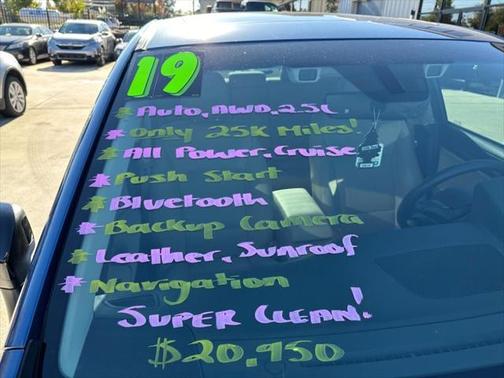 19
* Auto, AWD, 2.5L
* Only 25K Miles!
* All Power, Cruise
* Push Start
* Bluetooth
* Backup Camera
* Leather, Sunroof
* Navigation
Super Clean!
$20,950